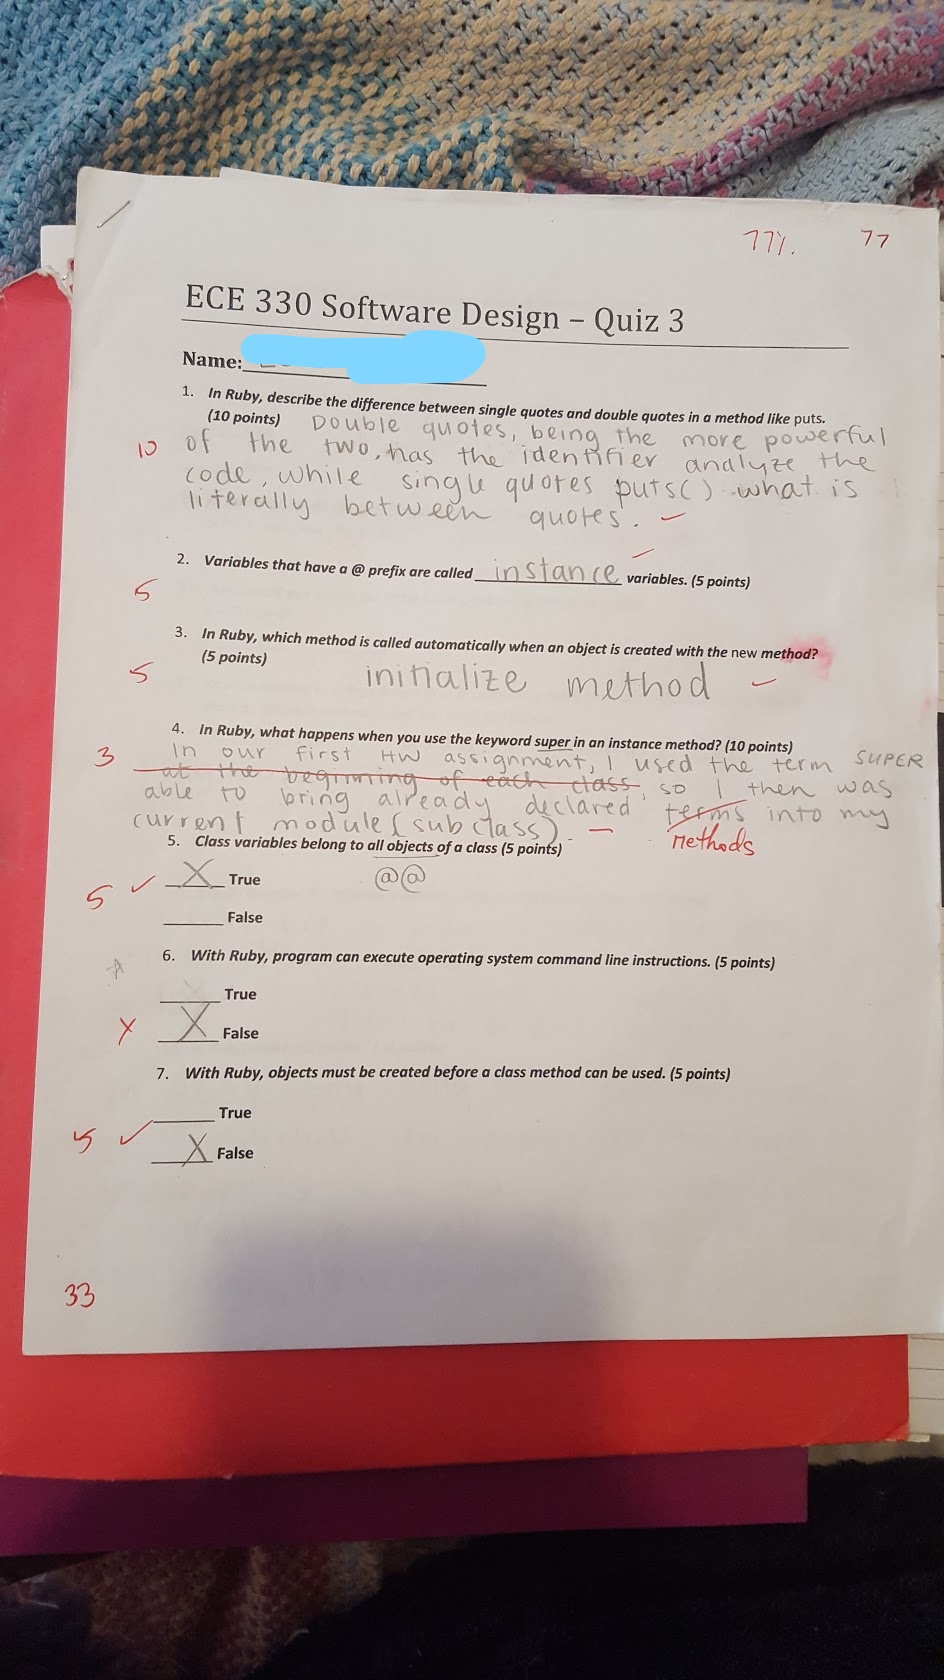 77%. 77
ECE 330 Software Design – Quiz 3
Name:
1. In Ruby, describe the difference between single quotes and double quotes in a method like puts.
(10 points) Double quotes, being the more powerful
10 of the two, has the identifier analyze the
code, while single quotes puts() what is
literally between quotes.
2. Variables that have a @ prefix are called instance variables. (5 points)
5
3. In Ruby, which method is called automatically when an object is created with the new method?
5 (5 points) initialize method
4. In Ruby, what happens when you use the keyword super in an instance method? (10 points)
3 In our first HW assignment, I used the term SUPER
at the beginning of each class, so I then was
able to bring already declared terms into my
current module (subclass). Methods
5. Class variables belong to all objects of a class (5 points)
5 ✓ X True @@
False
6. With Ruby, program can execute operating system command line instructions. (5 points)
True
X X False
7. With Ruby, objects must be created before a class method can be used. (5 points)
5 ✓ True
X False
33